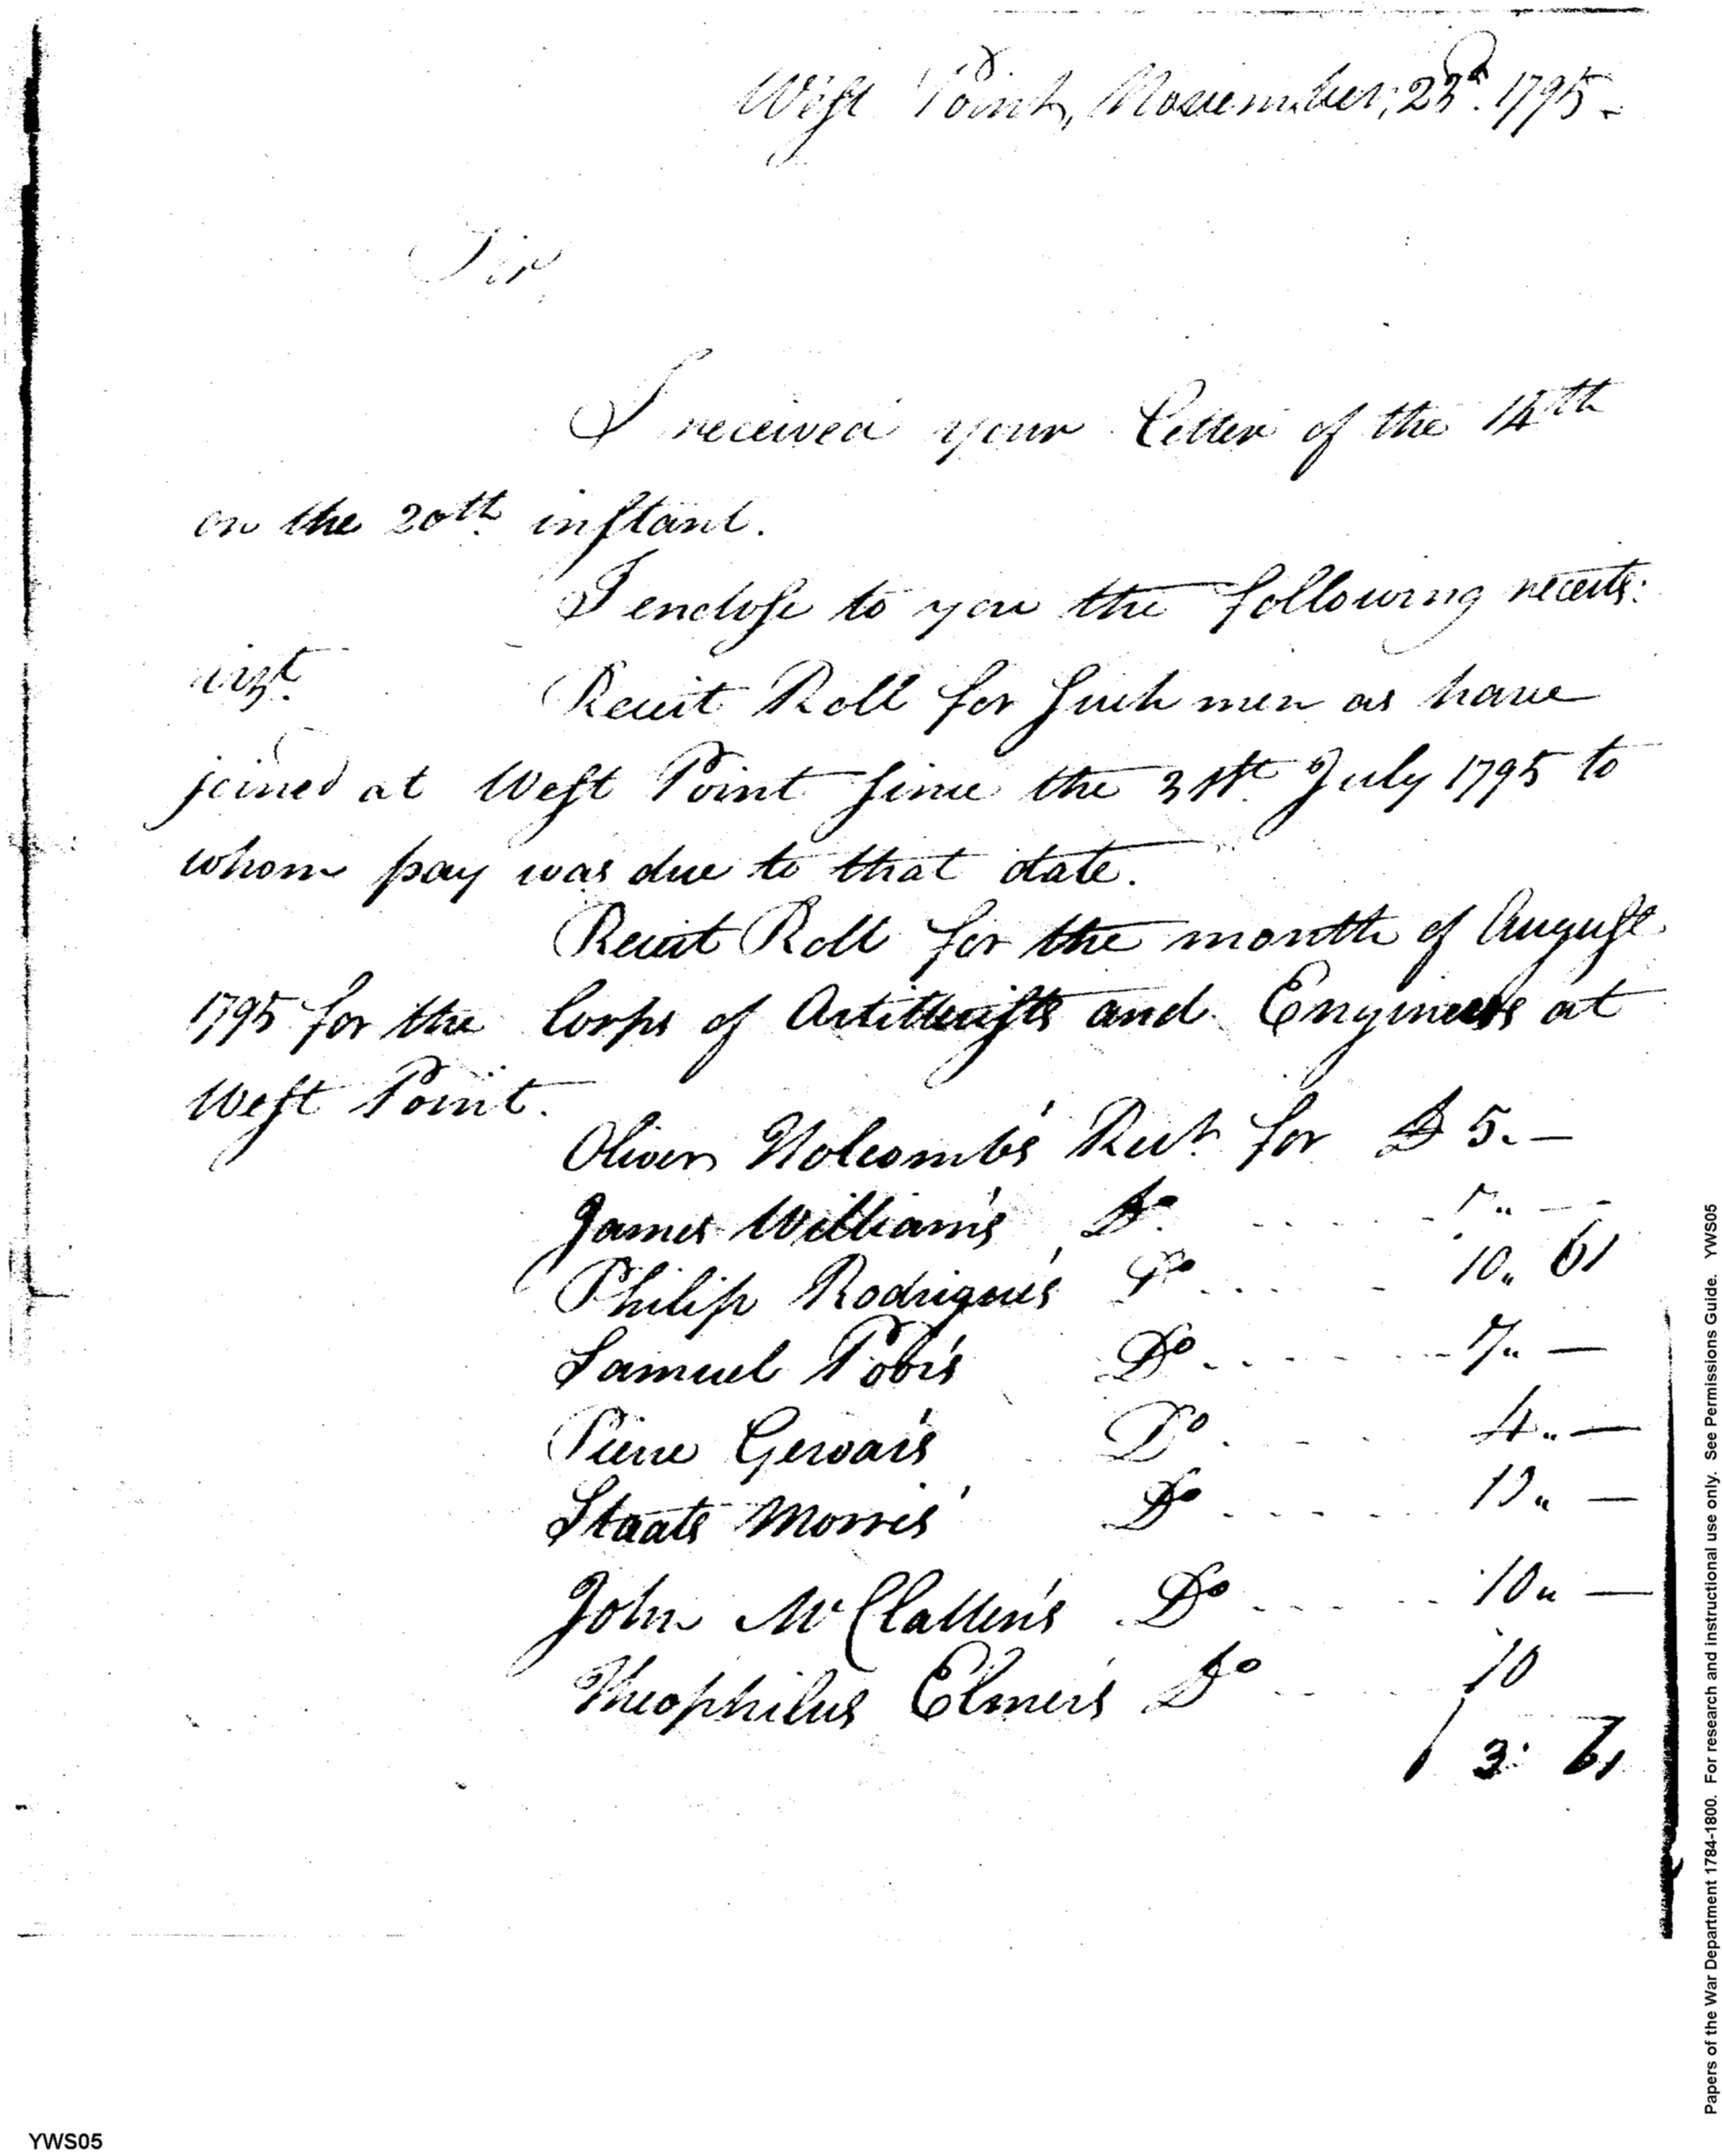 West Point, November, 23d. 1795.
Sir,
I received your Letter of the 14th
on the 20th. instant.
I enclose to you the following receits:
Receit Roll for such men as have
joined at West Point since the 31st. July 1795 to
whom pay was due to that date.
Receit Roll for the month of August
1795 for the Corps of Artillerists and Engineers at
West Point.
Oliver Holcomb's Rect. for D 5.—
James William's Do.
Philip Rodrigue's Do 10,, 61
Samuel Pobi's Do 7,, —
Pierre Gervai's Do. 4,, —
Staats Morris' Do —
John McClallen's Do 10,, —
Theophilus Elmer's Do 10
3 61
YWS05
Papers of the War Department 1784-1800. For research and instructional use only. See Permissions Guide. YWS05